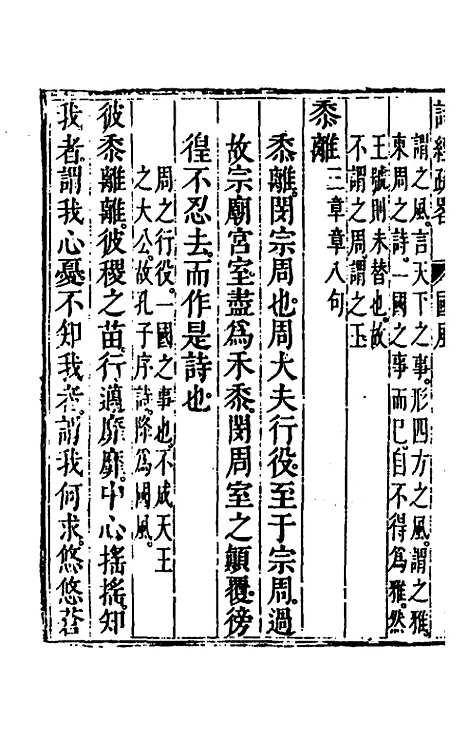 詩經疏畧 國風
謂之風。言天下之事。形四方之風。謂之雅。
東周之詩。一國之事而已。自不得爲雅。然
王號則未替也。故
不謂之周謂之王
黍離 三章章八句
黍離。閔宗周也。周大夫行役。至于宗周。過
故宗廟宮室。盡爲禾黍。閔周室之顛覆。徬
徨不忍去。而作是詩也。
周之行役。一國之事也。不成天王
之大公。故孔子序詩。降爲國風。
彼黍離離。彼稷之苗。行邁靡靡。中心搖搖。知
我者。謂我心憂。不知我者。謂我何求。悠悠蒼